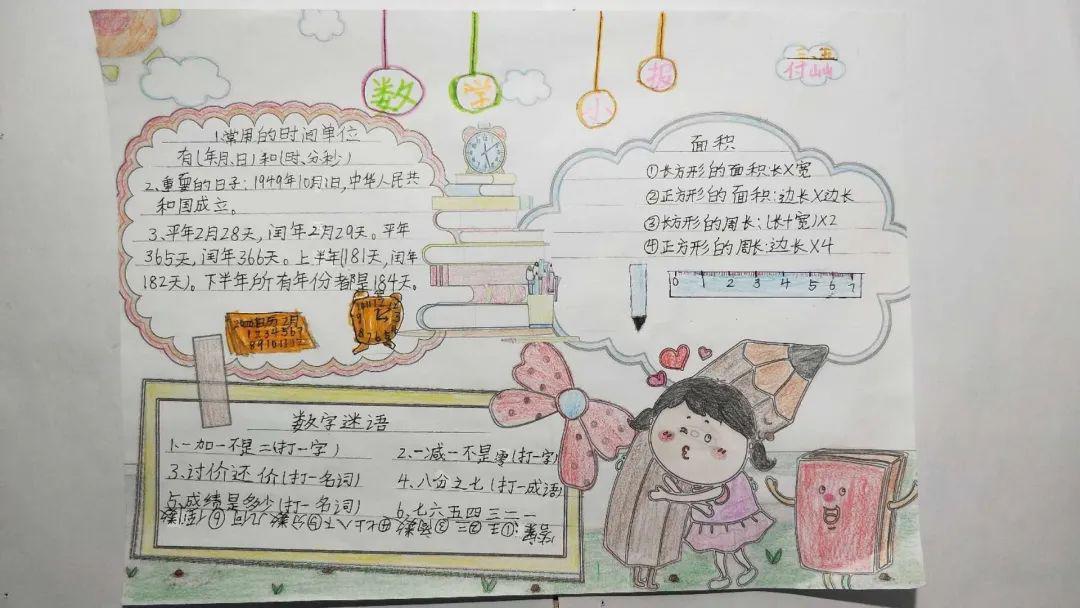 数学小报
三五
付屾屾
1.常用的时间单位
有(年、月、日)和(时、分、秒)
2、重要的日子:1949年10月1日,中华人民共
和国成立。
3、平年2月28天,闰年2月29天。平年
365天,闰年366天。上半年(181天,闰年
182天)。下半年所有年份都是184天。
2月
1 2 3 4 5 6 7
8 9 10 11 12
面积
①长方形的面积:长×宽
②正方形的面积:边长×边长
③长方形的周长:(长+宽)×2
④正方形的周长:边长×4
0 1 2 3 4 5 6 7
数字迷语
1.一加一不是二(打一字)
2、一减一不是零(打一字)
3.讨价还价(打一名词)
4、八分之七(打一成语)
5、成绩是多少(打一名词)
6、七六五四三二一